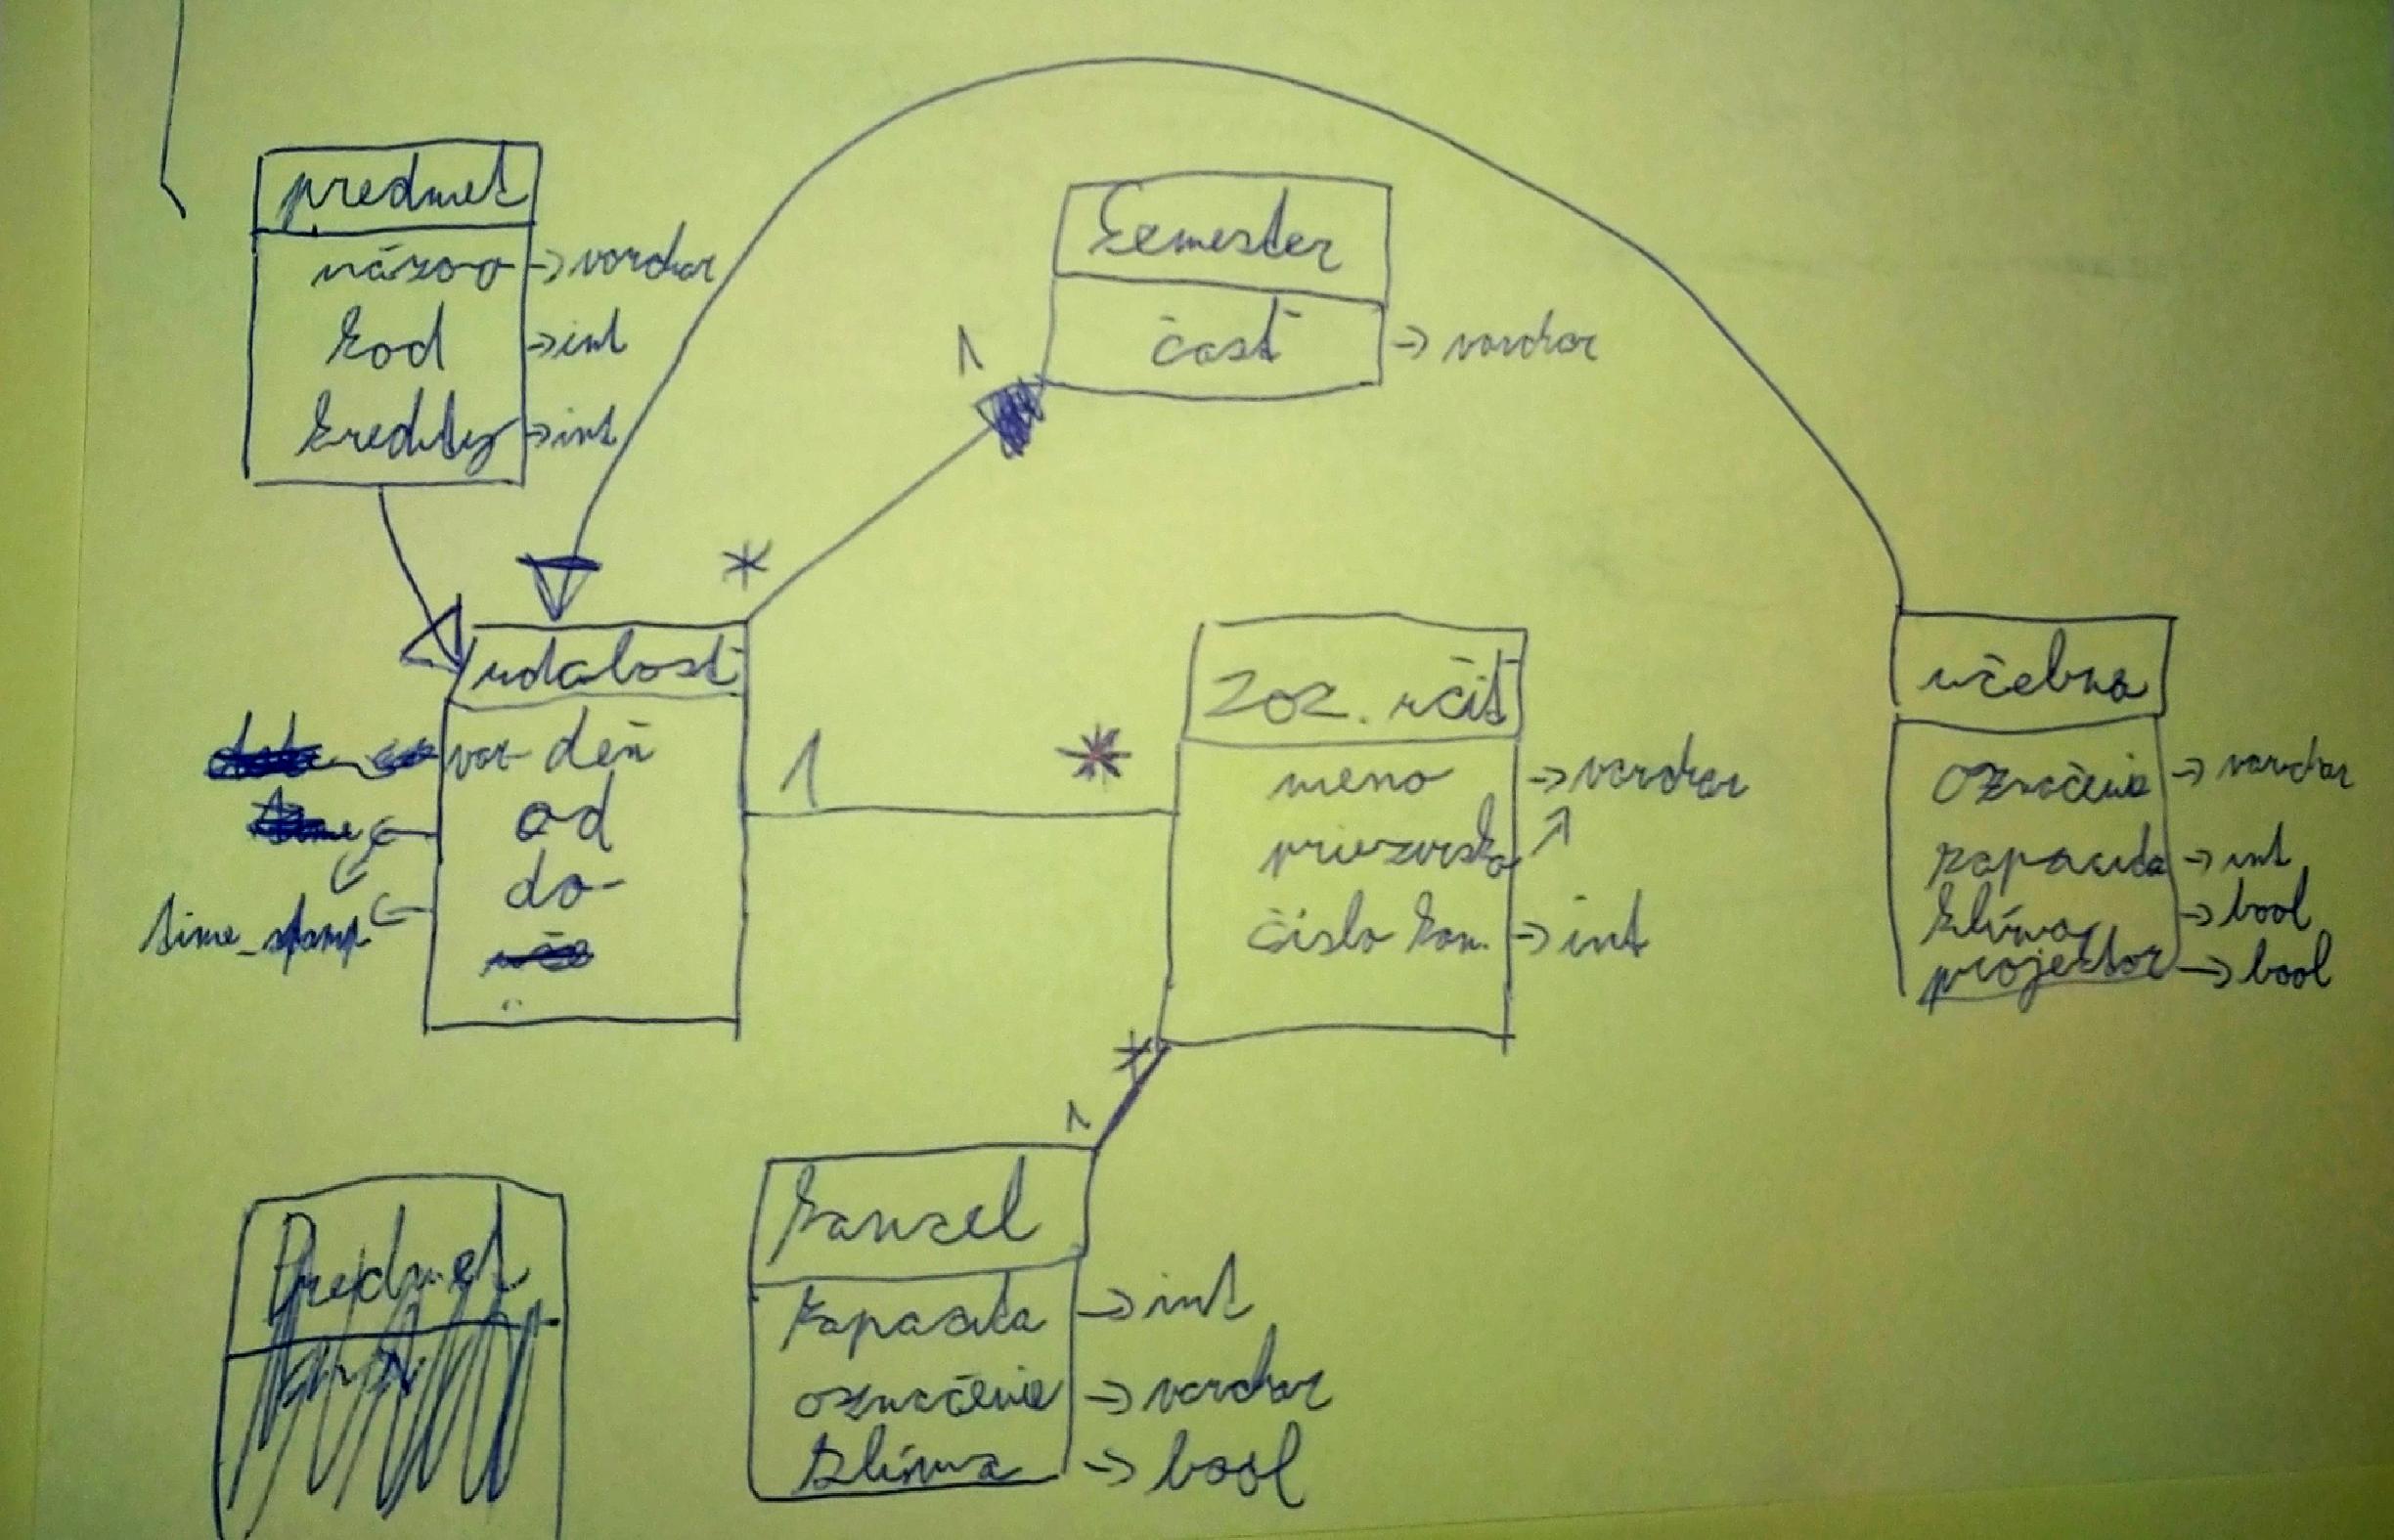 predmet
názov → varchar
kod → int
kredity → int
Semester
časť → varchar
1
*
udalosť
var deň
od
do
time_stamp
1
*
zoz. učit
meno → varchar
priezvisko
číslo kan. → int
učebna
označenie → varchar
kapacita → int
klíma → bool
projektor → bool
*
1
kancel
kapacita → int
označenie → varchar
klíma → bool
Predmet